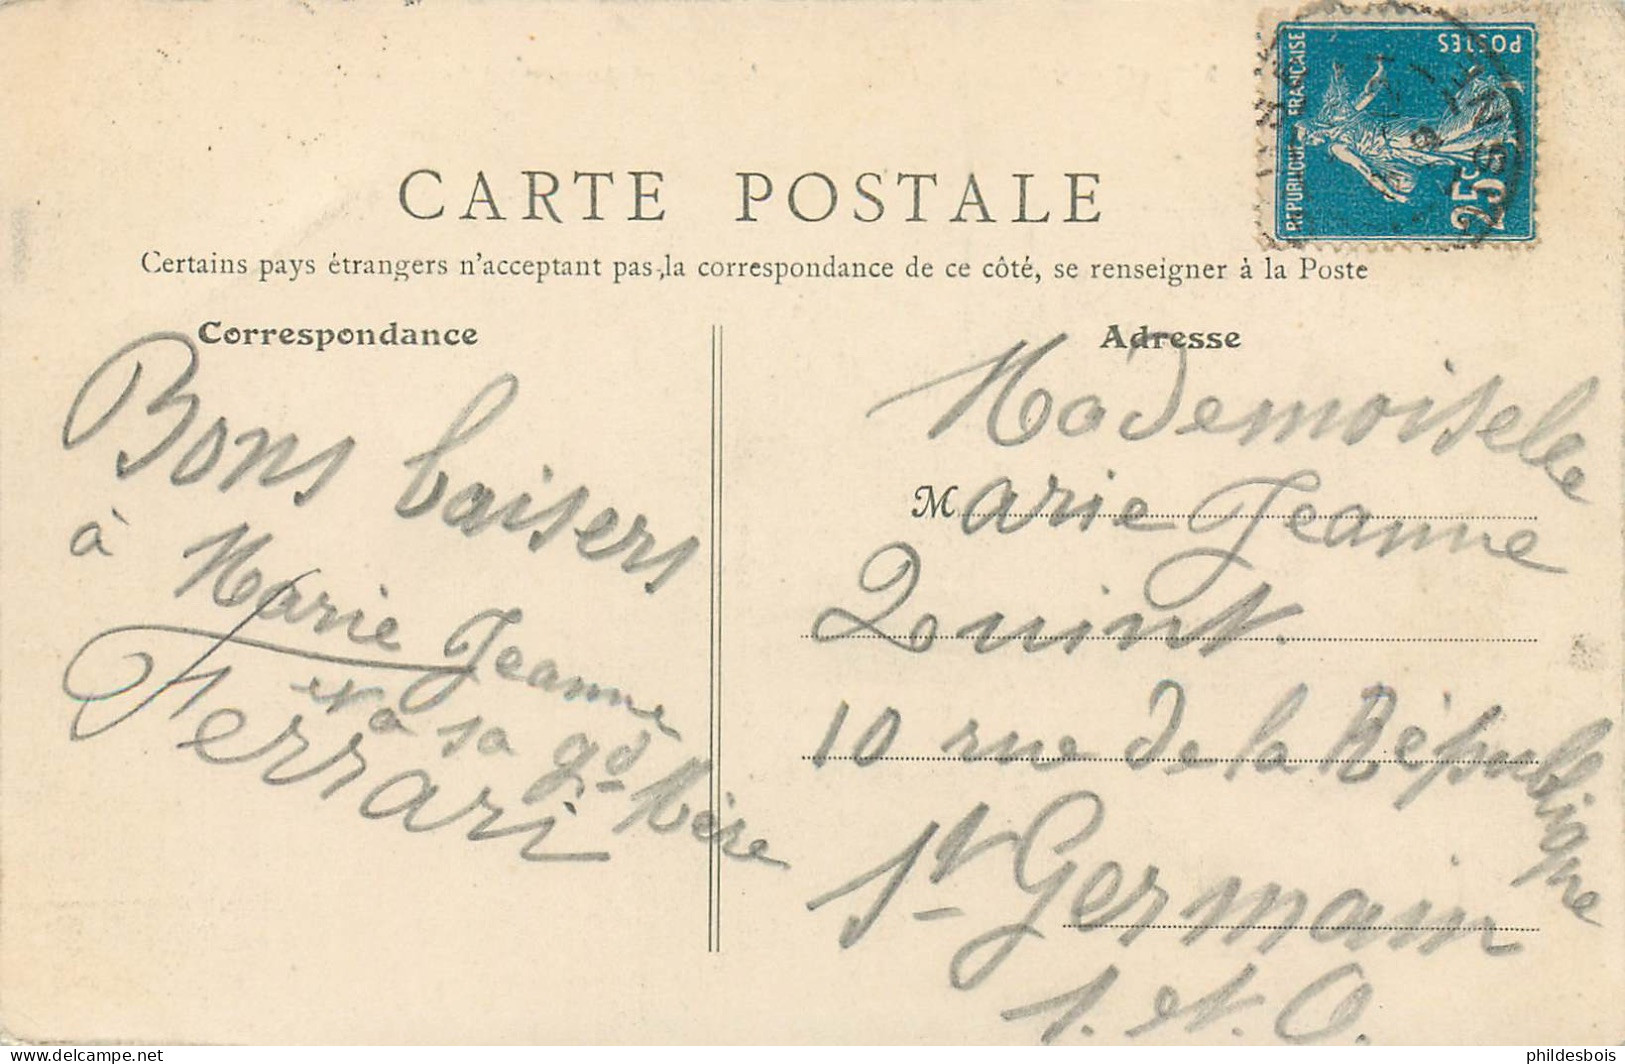 CARTE POSTALE
Certains pays étrangers n'acceptent pas la correspondance de ce côté, se renseigner à la Poste
Correspondance
Bons baisers
à Marie Jeanne
et à sa gd Mère
Ferrari
Adresse
Mademoiselle
Marie Jeanne
Quint.
10 rue de la République
St Germain
S. et. O.
RÉPUBLIQUE FRANÇAISE
POSTES
25c
phildesbois